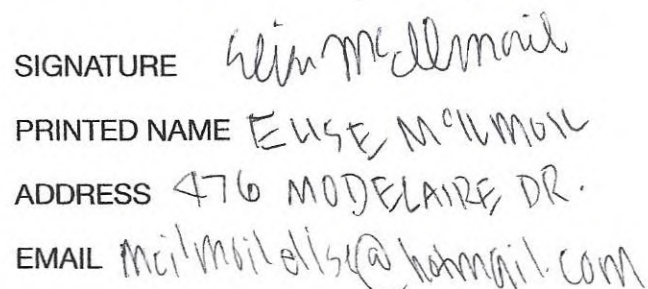 SIGNATURE Elise McIlmoil
PRINTED NAME ELISE McILMOIL
ADDRESS 476 MODELAIRE DR.
EMAIL mcilmoilelise@hotmail.com